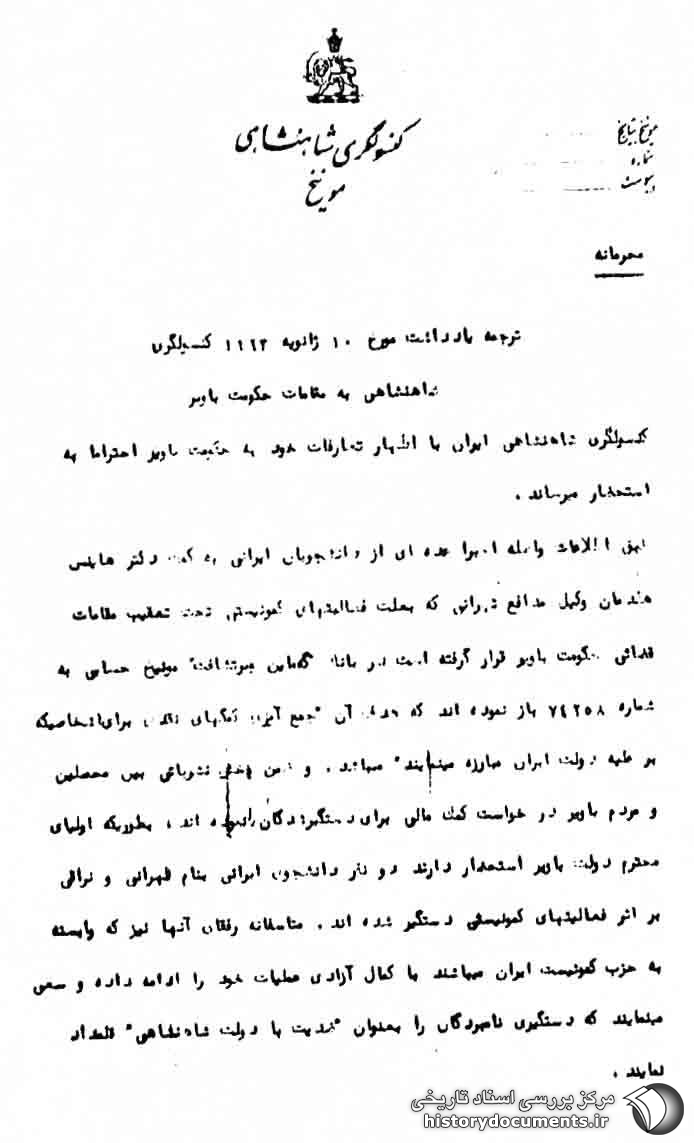 کنسولگری شاهنشاهی
مونیخ
مونیخ بتاریخ
شماره
پیوست
محرمانه
ترجمه یادداشت مورخ ۱۰ ژانویه ۱۹۶۳ کنسولگری
شاهنشاهی به مقامات حکومت باویر
کنسولگری شاهنشاهی ایران با اظهار تعارفات خود به حکومت باویر احتراما به
استحضار میرساند .
طبق اطلاعات واصله اخیرا عده ای از دانشجویان ایرانی به کمک دکتر هاینس
وکیل مدافع تهرانی که بعلت فعالیتهای کمونیستی تحت تعقیب مقامات
قضائی حکومت باویر قرار گرفته است در بانک مونیخ حسابی به
شماره ۷۴۲۵۸ باز نموده اند که هدف آن "جمع آوری کمکهای نقدی برای اشخاصیکه
بر علیه دولت ایران مبارزه مینمایند" میباشد . و ضمن پخش نشریاتی بین محصلین
و مردم باویر در خواست کمک مالی برای دستگیرشدگان نموده اند ، بطوریکه اولیای
محترم دولت باویر استحضار دارند دو نفر دانشجوی ایرانی بنام طهرانی و نراقی
بر اثر فعالیتهای کمونیستی دستگیر شده اند . متاسفانه رفقای آنها نیز که وابسته
به حزب کمونیست ایران میباشند با کمال آزادی عملیات خود را ادامه داده و سعی
مینمایند که دستگیری نامبردگان را بعنوان "ضدیت با دولت شاهنشاهی" قلمداد
نمایند .
مرکز بررسی اسناد تاریخی
historydocuments.ir